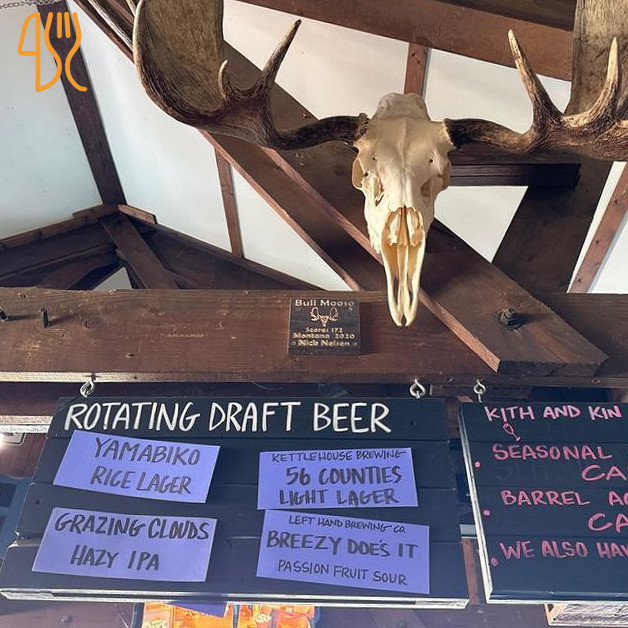 Bull Moose
Score: 172
Montana 2020
Nick Nelsen
ROTATING DRAFT BEER
YAMABIKO
RICE LAGER
KETTLEHOUSE BREWING
56 COUNTIES
LIGHT LAGER
GRAZING CLOUDS
HAZY IPA
LEFT HAND BREWING CO
BREEZY DOE'S IT
PASSION FRUIT SOUR
KITH AND KIN
SEASONAL
CA
BARREL AG
CA
WE ALSO HAV